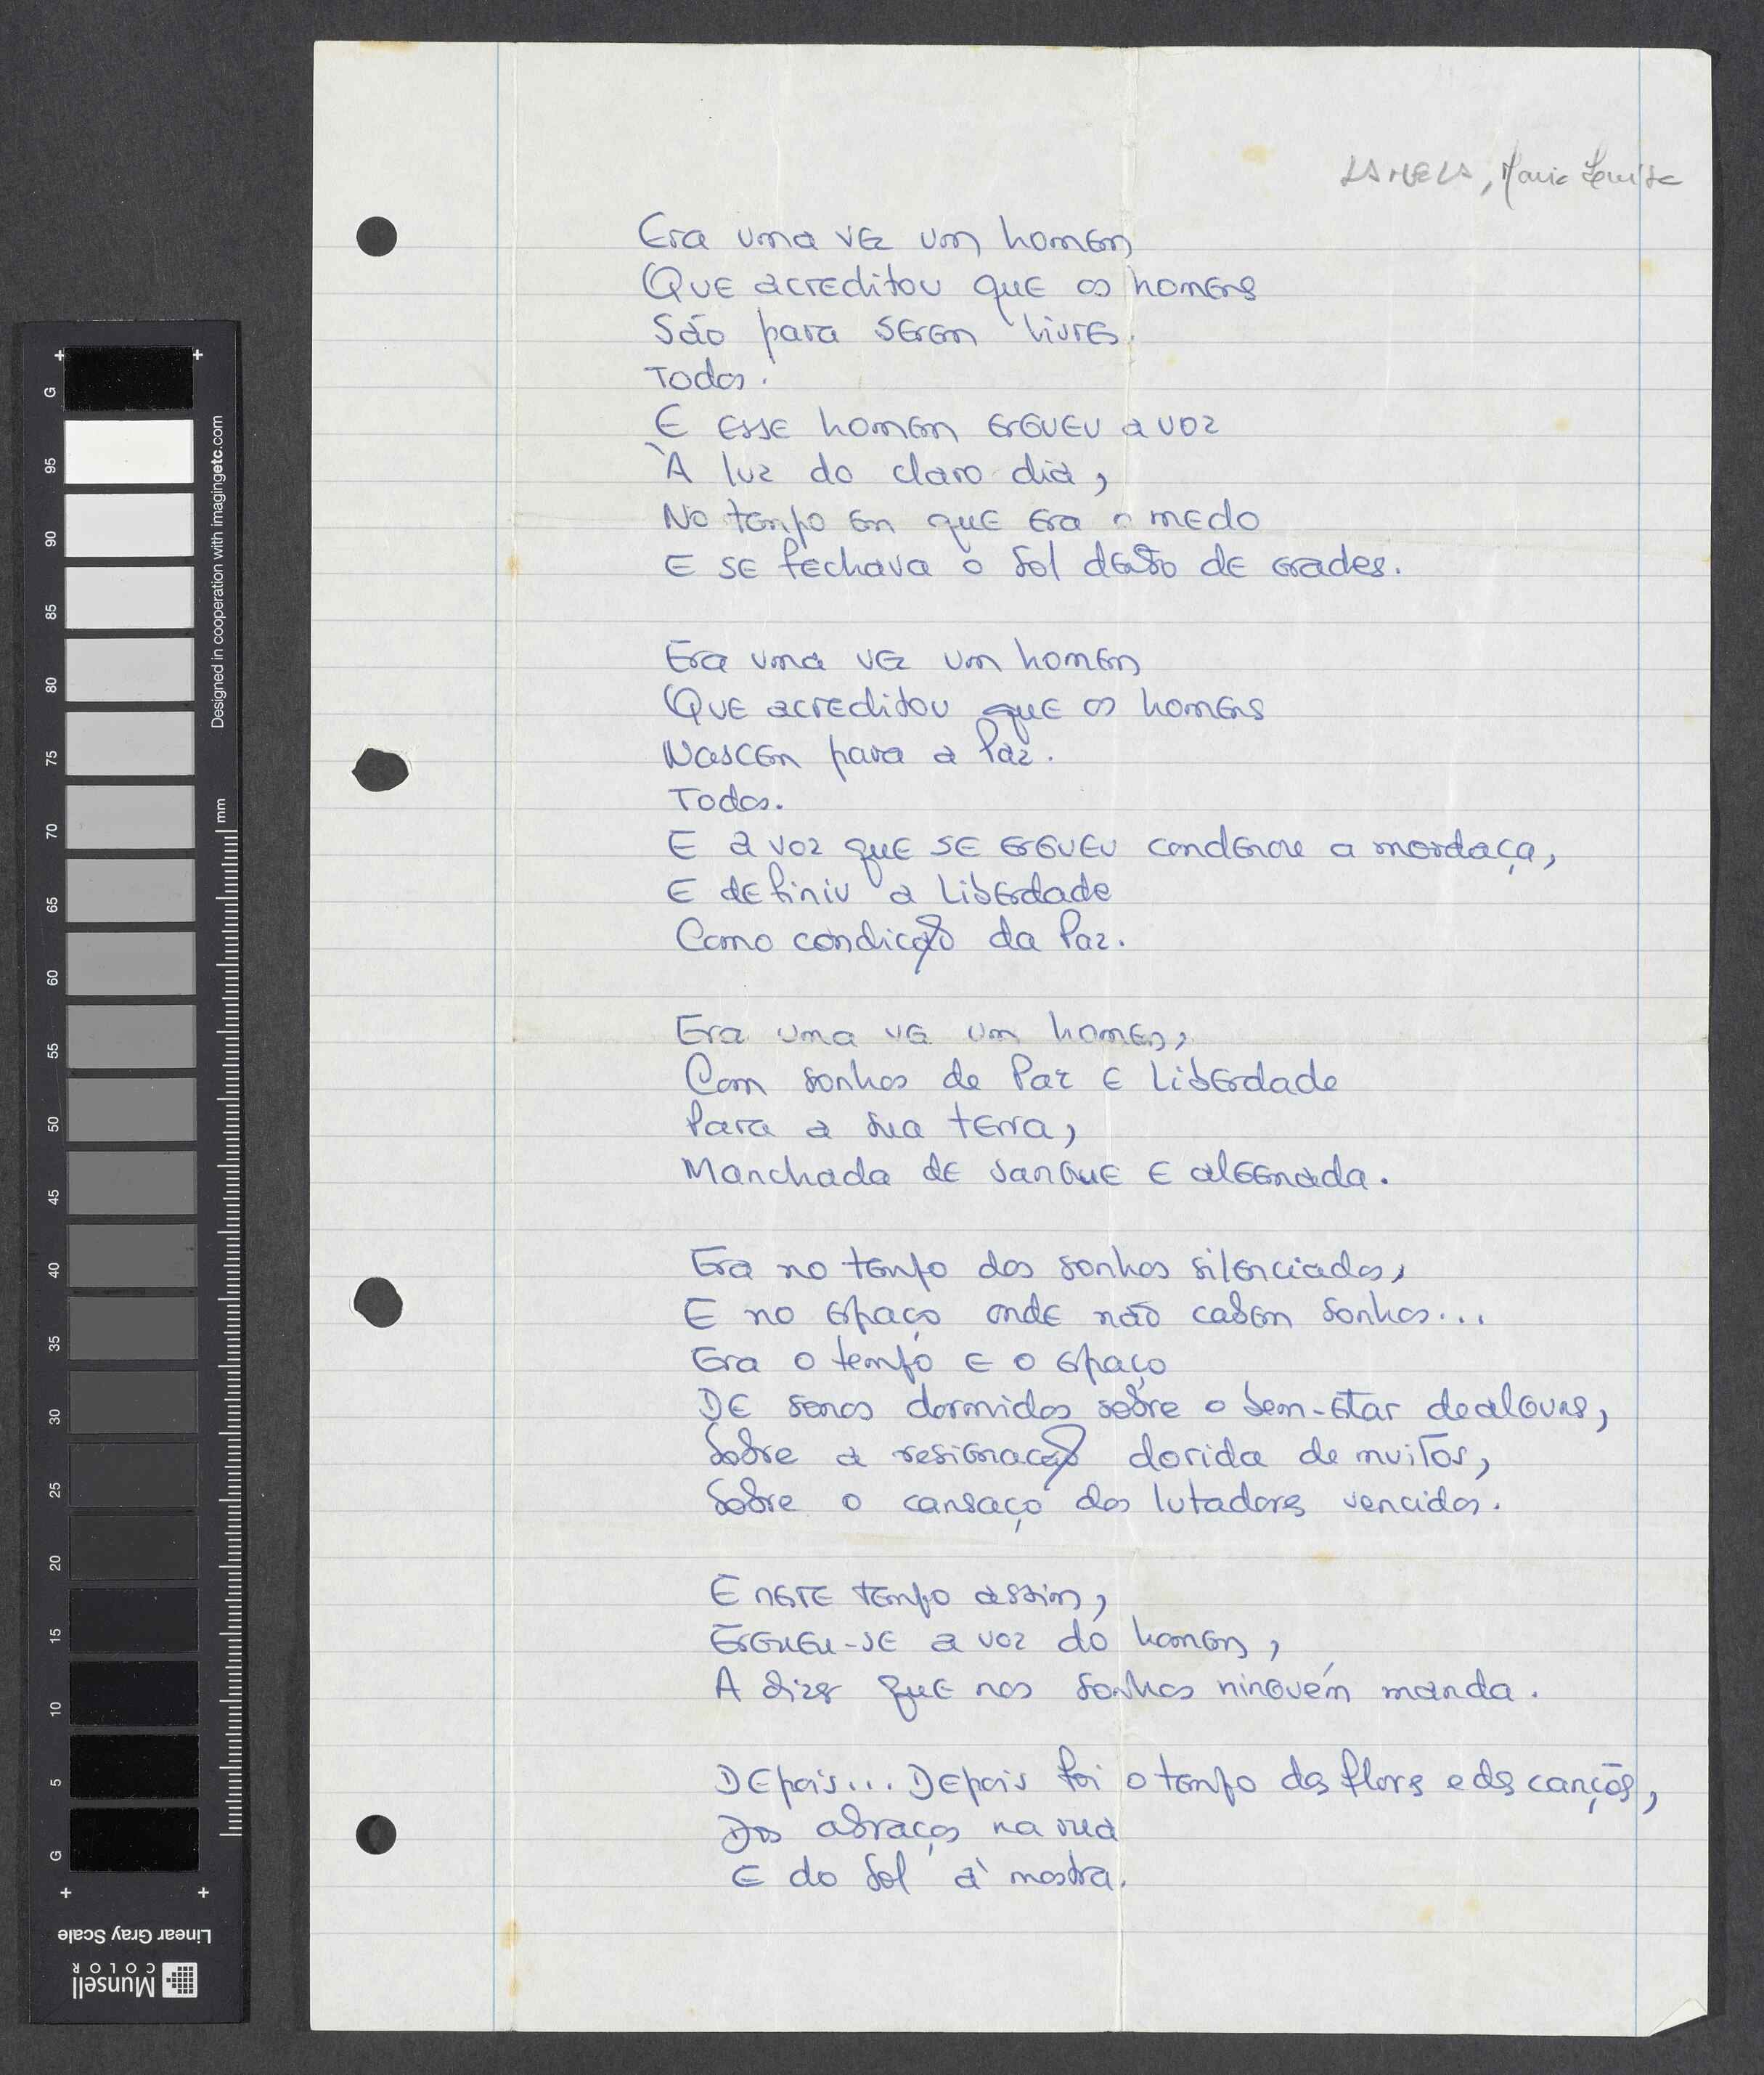 LAMELA, Maria Luisa
Era uma vez um homem
Que acreditou que os homens
São para serem livres.
Todos.
E esse homem ergueu a voz
À luz do claro dia,
No tempo em que era o medo
E se fechava o sol dentro de grades.
Era uma vez um homem
Que acreditou que os homens
Nascem para a Paz.
Todos.
E a voz que se ergueu condenou a mordaça,
E definiu a Liberdade
Como condição da Paz.
Era uma vez um homem,
Com sonhos de Paz e Liberdade
Para a sua terra,
Manchada de sangue e algemada.
Era no tempo dos sonhos silenciados,
E no espaço onde não cabem sonhos...
Era o tempo e o espaço
De sonos dormidos sobre o bem-estar de alguns,
Sobre a resignação dorida de muitos,
Sobre o cansaço dos lutadores vencidos.
E neste tempo assim,
Ergueu-se a voz do homem,
A dizer que nos sonhos ninguém manda.
Depois... Depois foi o tempo das flores e das canções,
Dos abraços na rua
E do sol à mostra.
G
95
90
85
80
75
70
65
60
55
50
45
40
35
30
25
20
15
10
5
G
mm
Designed in cooperation with imagingetc.com
Linear Gray Scale
Munsell
COLOR